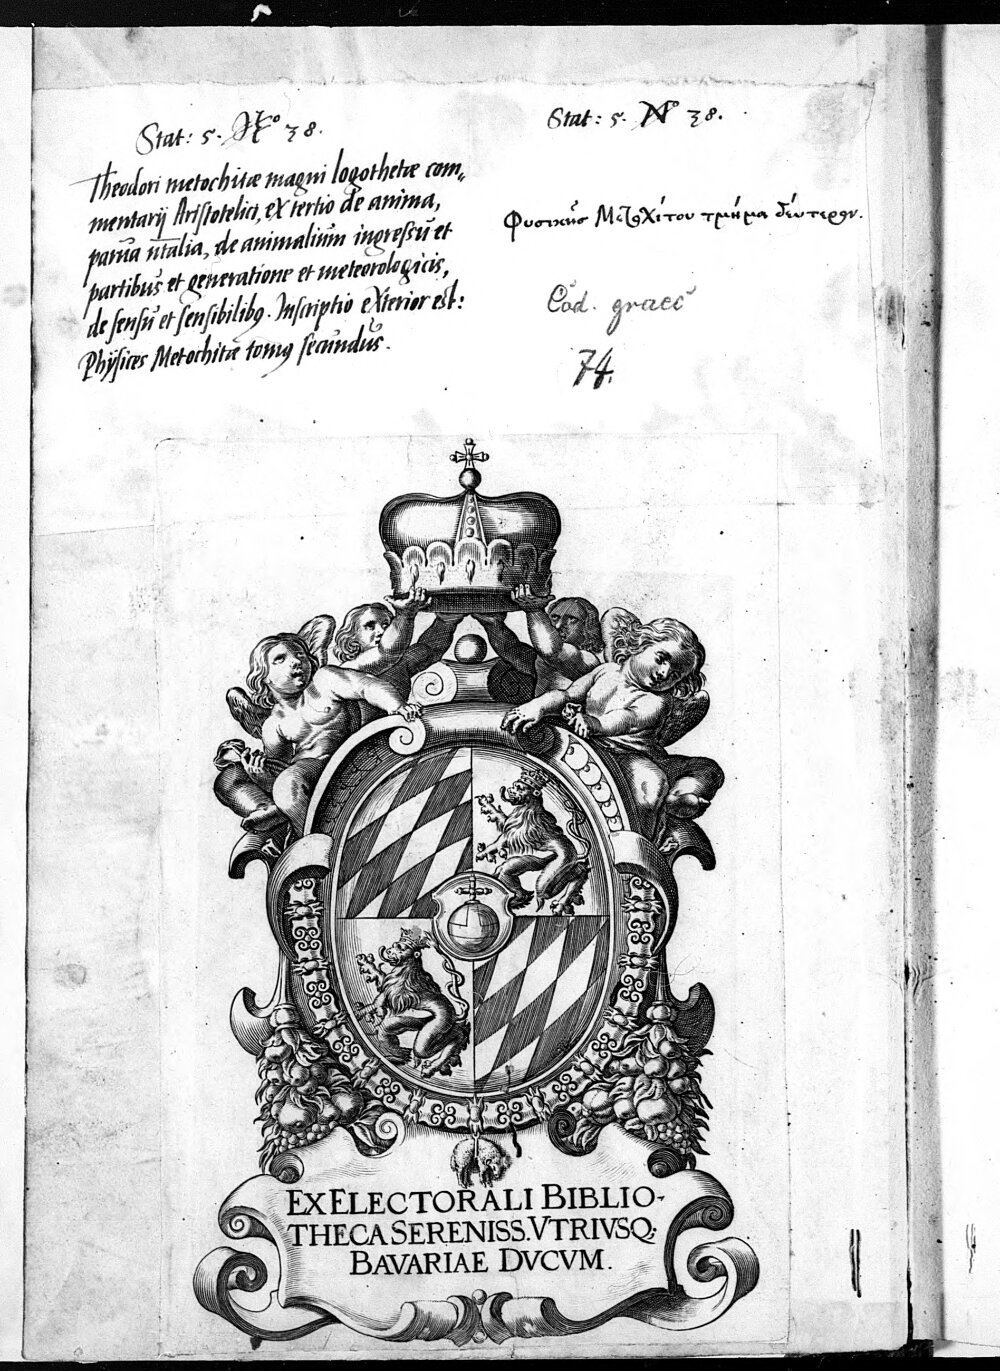 Stat: 5. N° 38.
Theodori metochitæ magni logothetæ com„
mentarij Aristotelici, ex tertio de anima,
parua ntalia, de animalium ingressū et
partibus et generatione et meteorologicis,
de sensū et sensibilibꝰ. Inscriptio exterior est:
Physices Metochitæ tomꝰ secundus.
Stat: 5. N° 38.
Φυσικῆς Μετοχίτου τμῆμα δεύτερον.
Cod. graec
74.
EX ELECTORALI BIBLIO-
THECA SERENISS. VTRIVSQ;
BAVARIAE DVCVM.